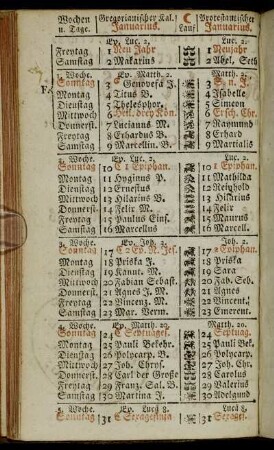 Wochen Gregorianischer Kal. ☾ Protestantischer
u. Tage. Januarius. Lauf Januarius.
Ep. Luc. 2. Luc. 2.
Freytag 1 Neu Jahr 1 Neujahr
Samstag 2 Makarius 2 Abel, Seth
2. Woche. Ep. Matth. 2. Matth. 2.
Sonntag 3 Genovefa J. 3 S. n. J.
Montag 4 Titus B. 4 Isabelle
Dienstag 5 Thelesphor. 5 Simeon
Mittwoch 6 Heil. drey Kön. 6 Ersch. Chr.
Donnerst. 7 Lucianus M. 7 Raymund
Freytag 8 Erhardus B. 8 Erhard
Samstag 9 Marcellin. B. 9 Martialis
3. Woche. Ep. Luc. 2. Luc. 2.
Sonntag 10 1 Epiphan. 10 1 Epiphan
Montag 11 Hyginus P. 11 Mathilda
Dienstag 12 Ernestus 12 Reinhold
Mittwoch 13 Hilarius 13 Hilarius
Donnerst. 14 Felix M. 14 Felix
Freytag 15 Paulus Eins. 15 Maurus
Samstag 16 Marcellus 16 Marcell.
3. Woche. Ep. Joh. 2. Joh. 2.
Sonntag 17 2 Ep. N. Jes. 17 2 Epiphan.
Montag 18 Priska J. 18 Priska
Dienstag 19 Kanut. M. 19 Sara
Mittwoch 20 Fabian Sebast. 20 Fab. Seb.
Donnerst. 21 Agnes J. M. 21 Agnes
Freytag 22 Vincenz. M. 22 Vincent.
Samstag 23 Mar. Verm. 23 Emerent.
4. Woche. Ep. Matth. 20. Matth. 20.
Sonntag 24 Septuages. 24 Septuag.
Montag 25 Pauli Bekehr. 25 Pauli Bek.
Dienstag 26 Polycarp. B. 26 Polycarp.
Mittwoch 27 Joh. Chrys. 27 Joh. Chr.
Donnerst. 28 Carl der Große 28 Carolus
Freytag 29 Franz. Sal. B. 29 Valerius
Samstag 30 Martina J. 30 Adelgund
5. Woche. Ep. Luc. 8. Luc. 8.
Sonntag 31 Sexagesima 31 Sexages.